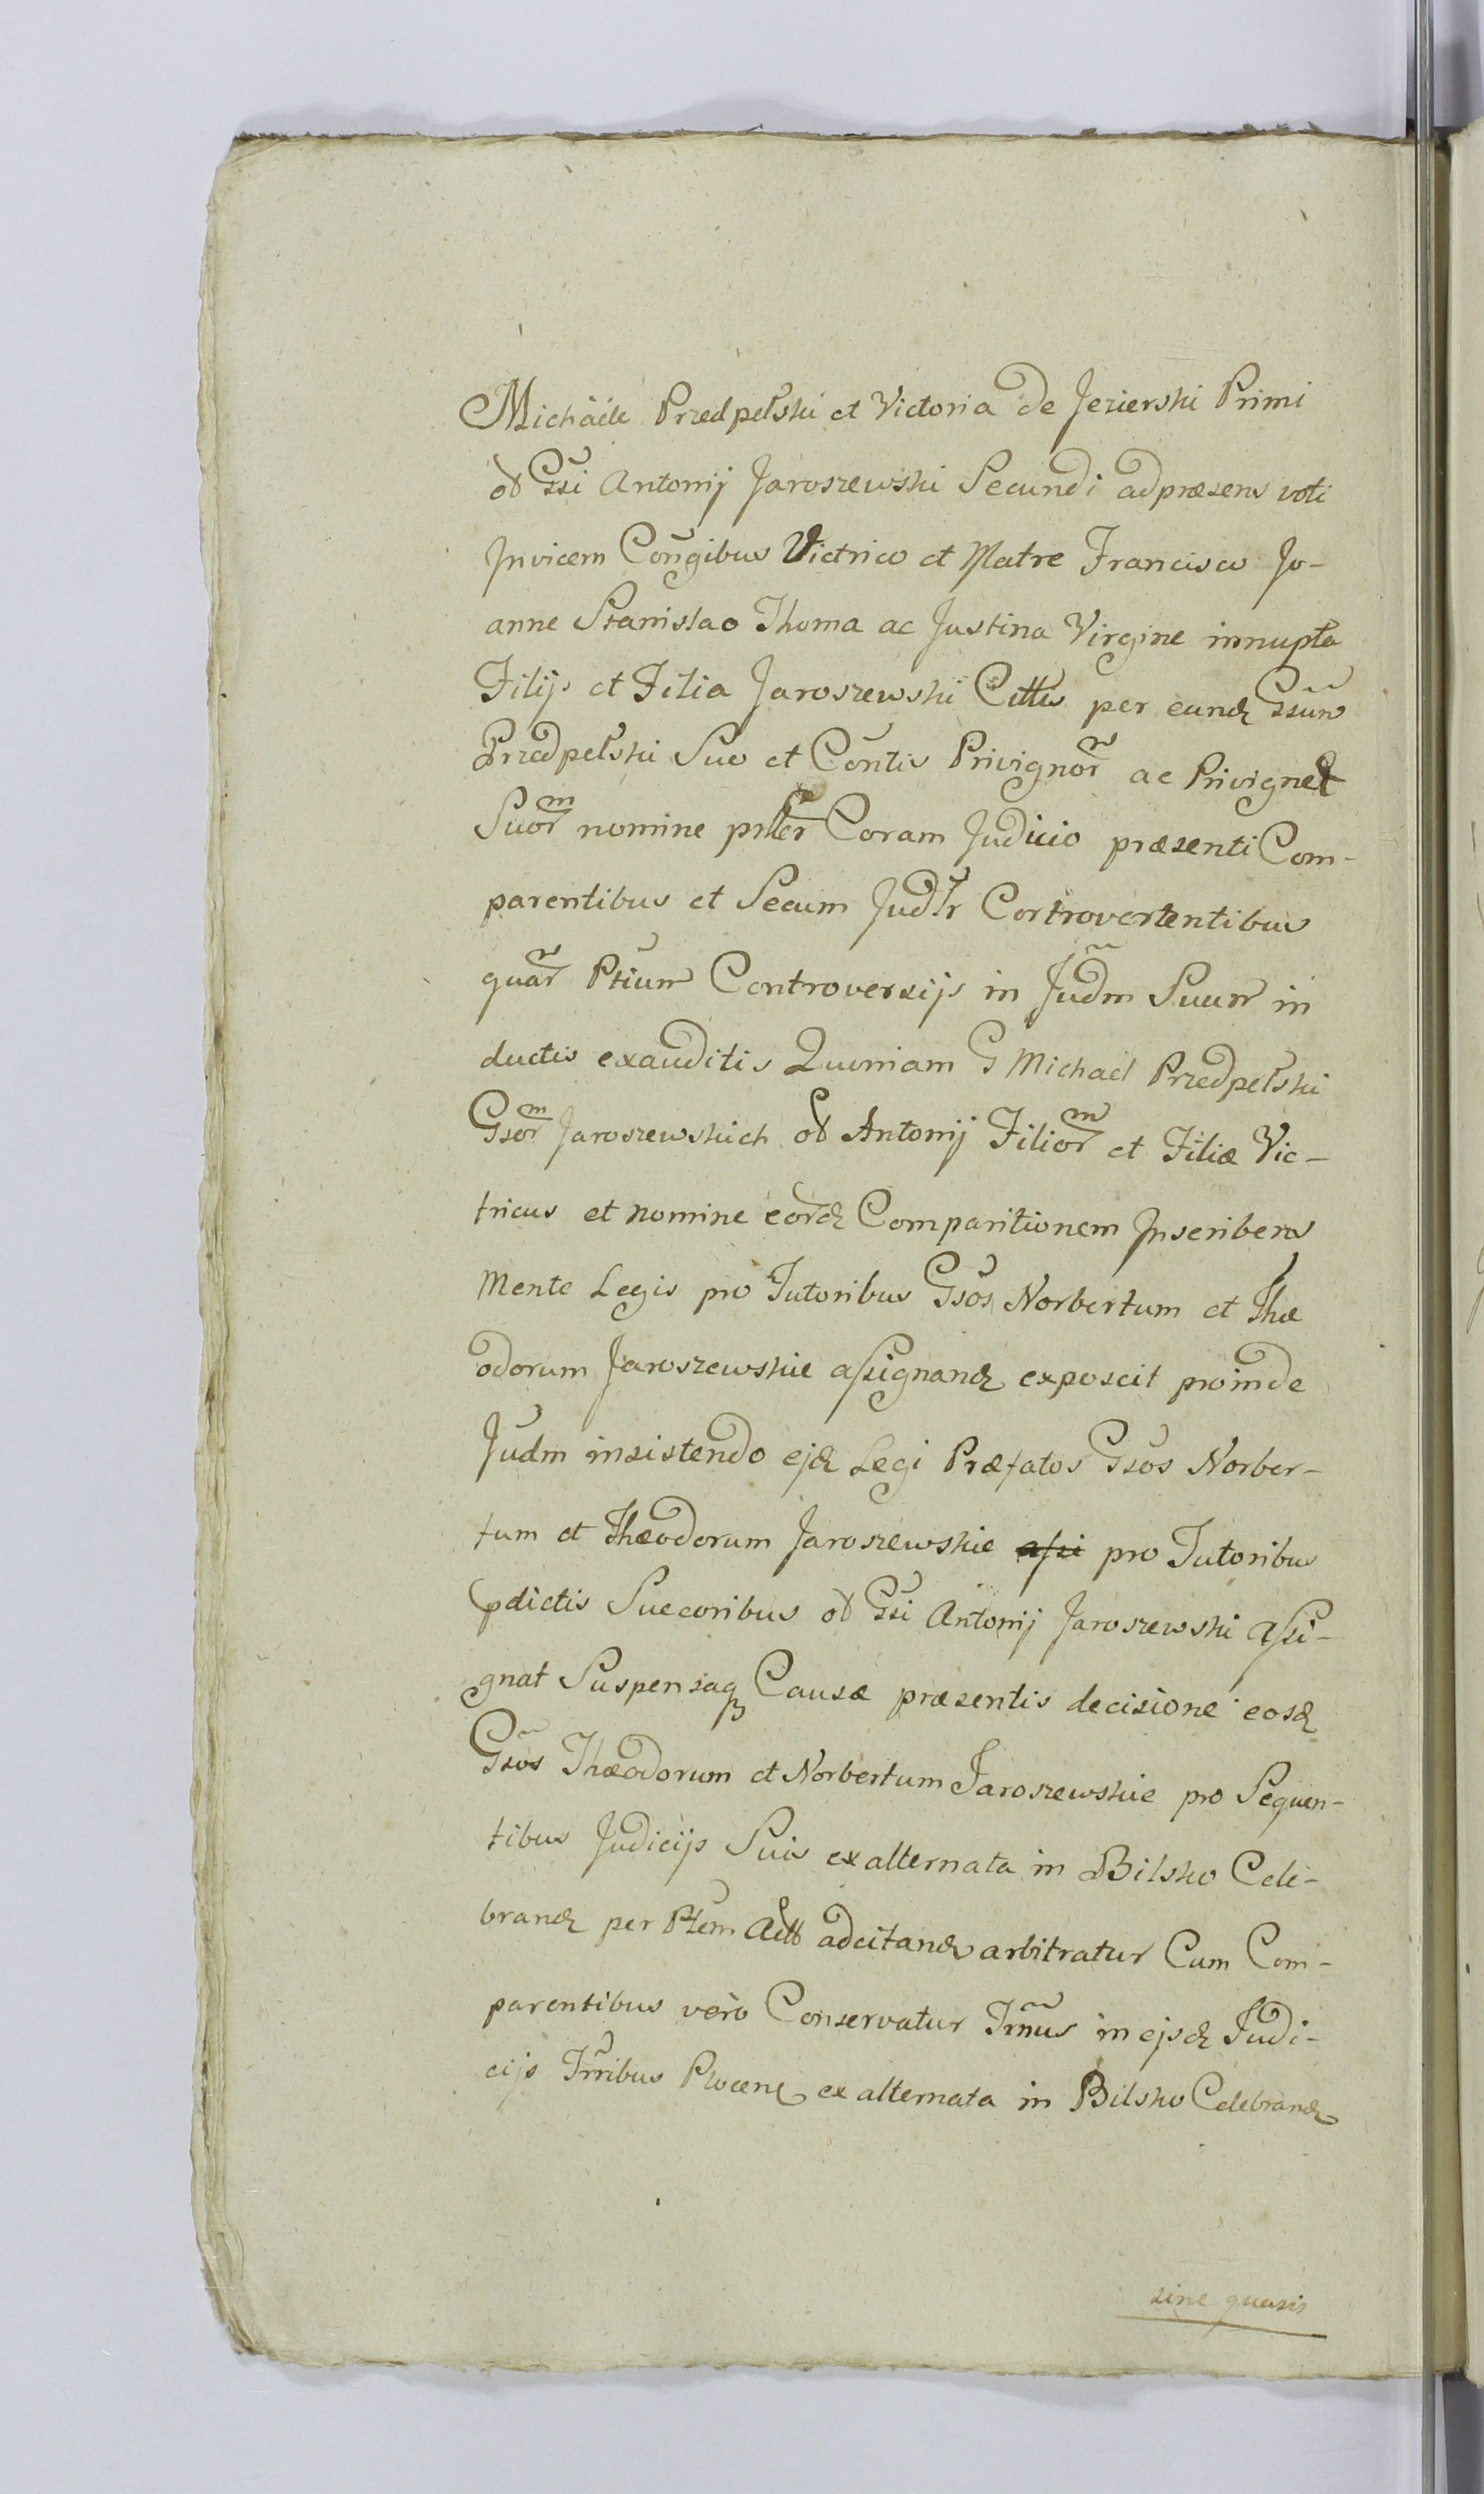 Michaële Przedpełski et Victoria de Jezierski Primi
oł Gsi Antonij Jaroszewski Secundi ad præsens voti
Invicem Conũgibus Victrico et Matre Francisco Jo-
anne Stanislao Thoma ac Justina Virgine innupta
Filijs et Filia Jaroszewski Cittis per eund Gsum
Przedpełski Suo et Contis Privignor ac Privignet
Suor nomine prlter Coram Judicio præsenti Com-
parentibus et Secum Judlr Controvertentibus
quar Ptium Controversijs in Judm Suum in
ductis exauditis Quoniam G Michael Przedpełski
Gsor Jaroszewskich oł Antonij Filior et Filiæ Vic-
tricus et nomine eord Comparitionem Inscribens
Mente Legis pro Tutoribus Gsos Norbertum et Thæ
odorum Jaroszewskie assignand exposcit proinde
Judm insistendo ejd Legi Præfatos Gsos Norber-
tum et Thæodorum Jaroszewskie assi pro Tutoribus
pdictis Succoribus oł Gsi Antonij Jaroszewski assi-
gnat Suspensaq Causæ præsentis decisione eosd
Gsos Thæodorum et Norbertum Jaroszewskie pro Sequen-
tibus Judicijs Suis ex alternata in Bilsko Cele-
brand per Ptem Actt adcitand arbitratur Cum Com-
parentibus verò Conservatur Trmnus in ejsd Judi-
cijs Trribus Plocen ex alternata in Bilsko Celebrand
sine quasis